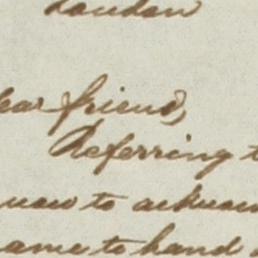 London
Dear friend,
Referring t
now to acknow
came to hand